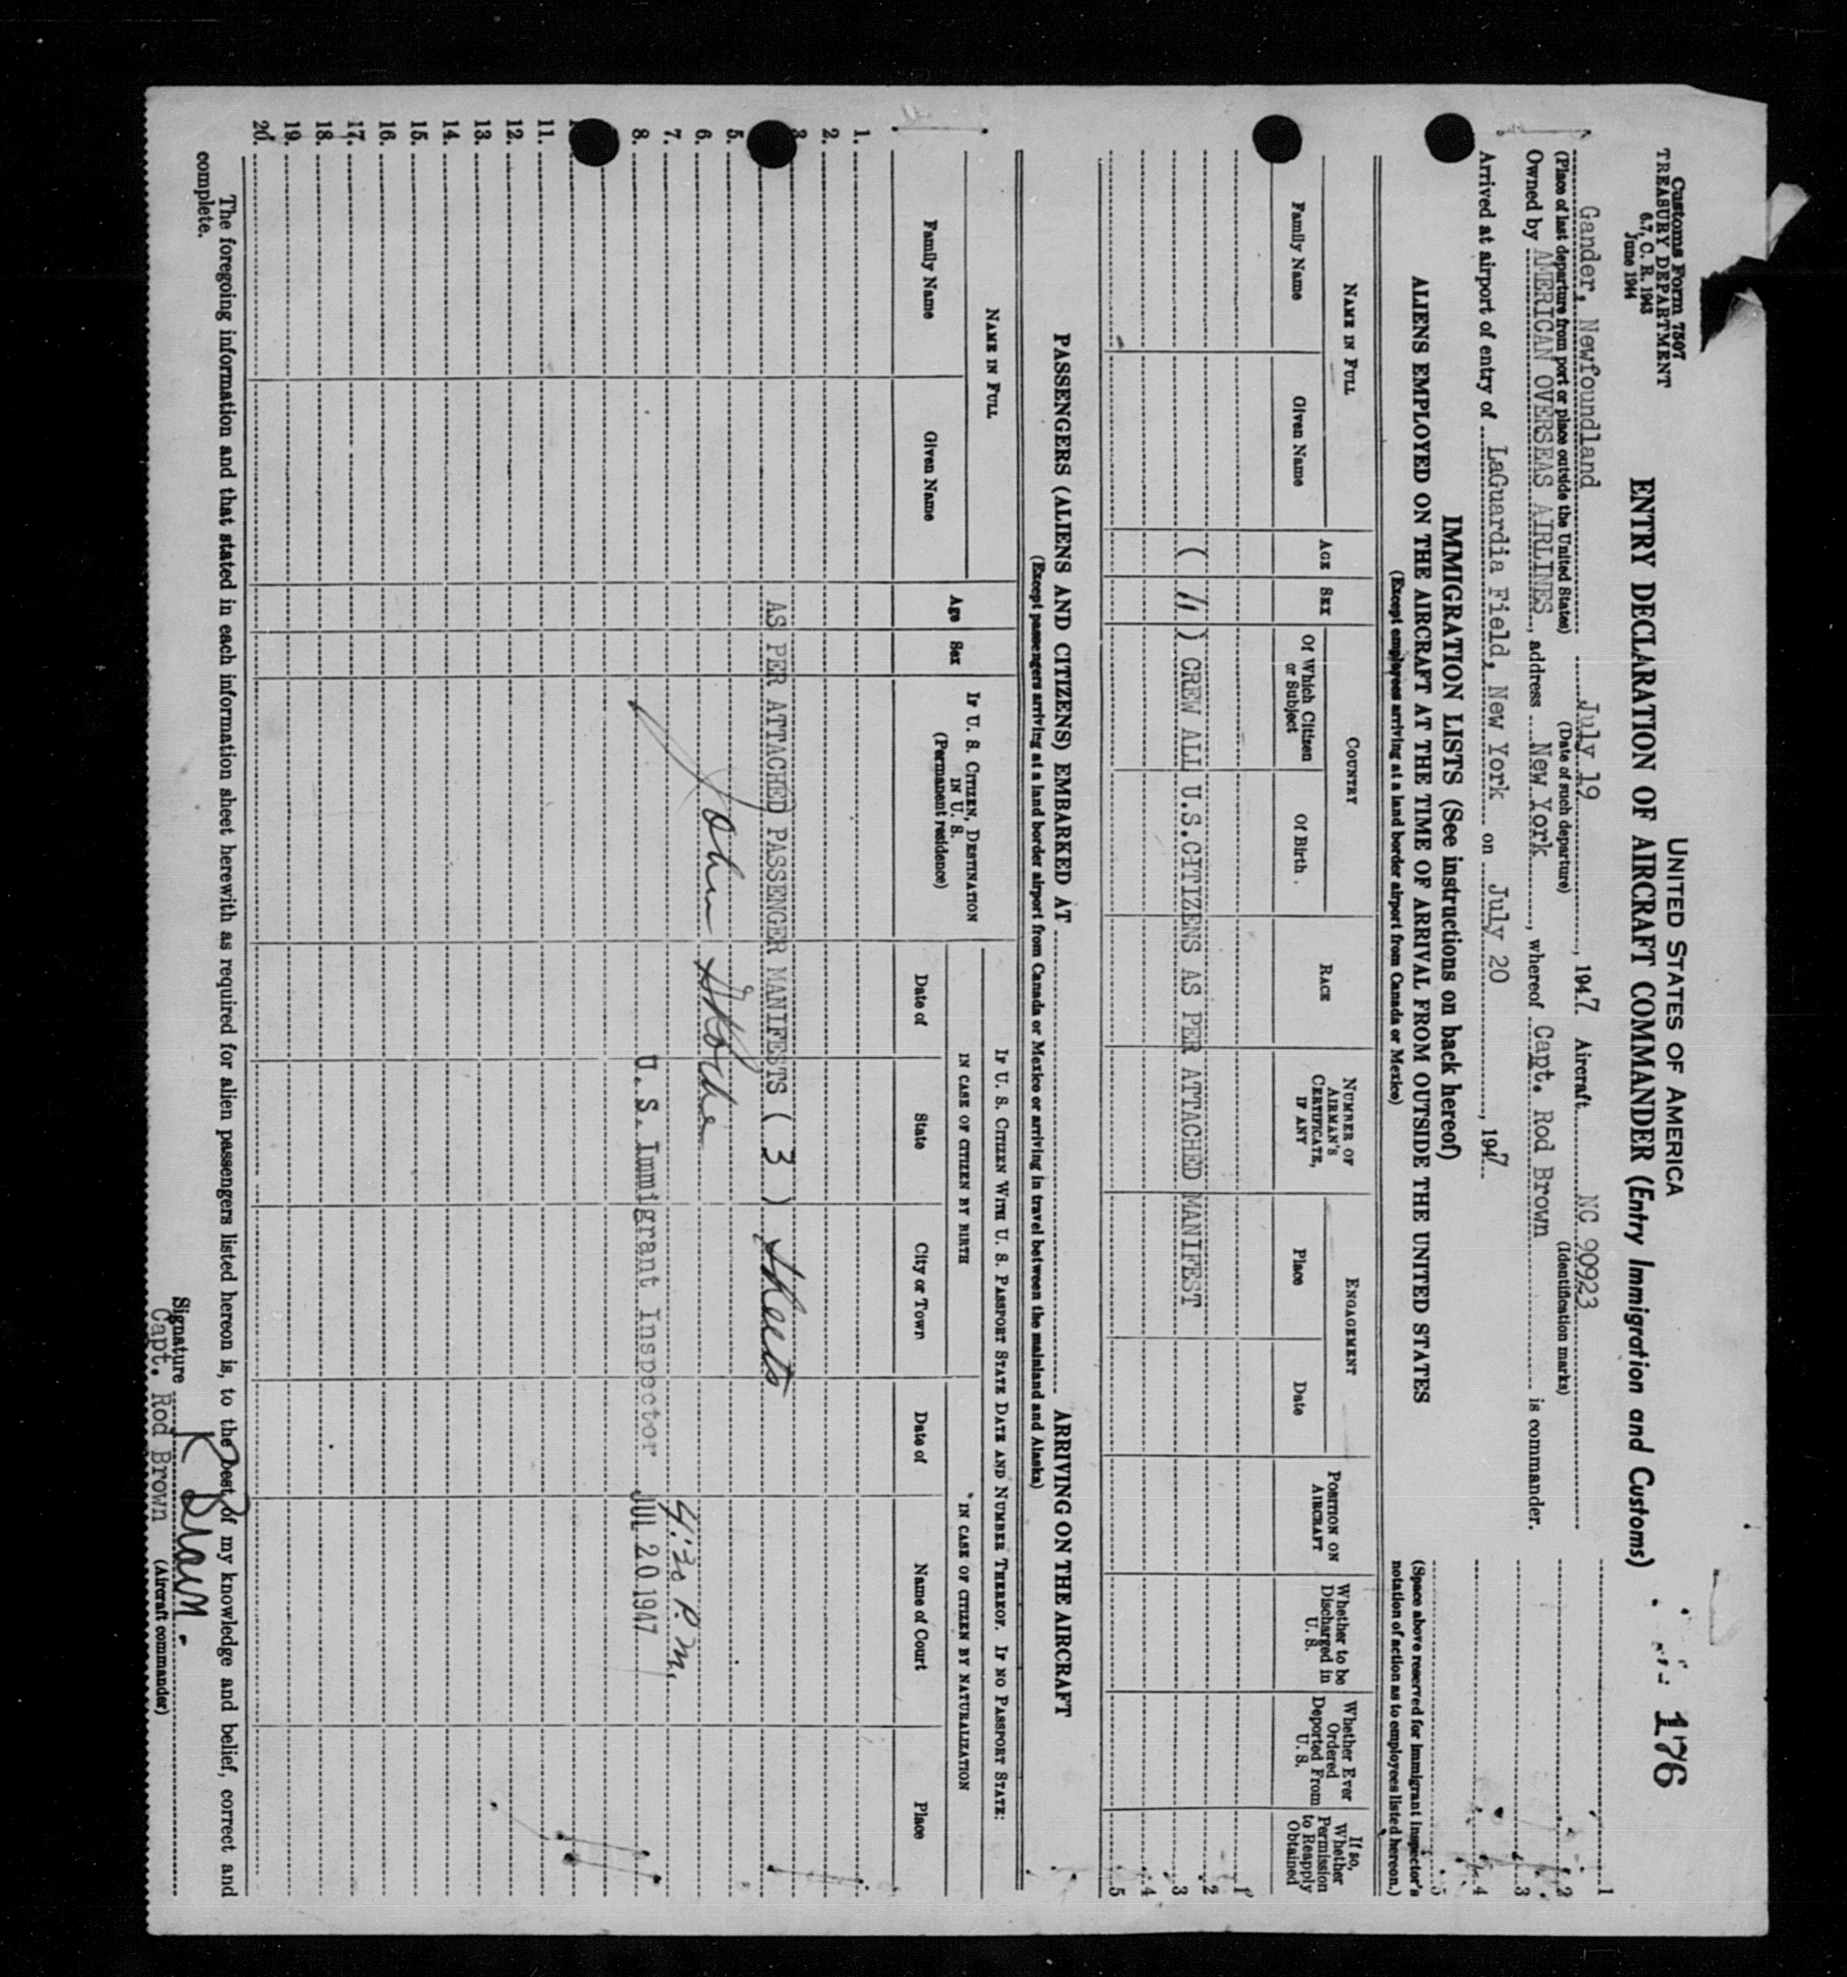 Customs Form 7507
TREASURY DEPARTMENT
6.7, C. R. 1943
June 1944
UNITED STATES OF AMERICA
ENTRY DECLARATION OF AIRCRAFT COMMANDER (Entry Immigration and Customs)
176
Gander, Newfoundland July 19, 1947 Aircraft NC 90923
(Place of last departure from port or place outside the United States) (Date of such departure) (Identification marks)
Owned by AMERICAN OVERSEAS AIRLINES, address New York, whereof Capt. Rod Brown is commander.
Arrived at airport of entry of LaGuardia Field, New York on July 20, 1947
1
2
3
4
5
(Space above reserved for immigrant inspector's notation of action as to employees listed hereon.)
IMMIGRATION LISTS (See instructions on back hereof)
ALIENS EMPLOYED ON THE AIRCRAFT AT THE TIME OF ARRIVAL FROM OUTSIDE THE UNITED STATES
(Except employees arriving at a land border airport from Canada or Mexico)
NAME IN FULL
Family Name
Given Name
AGE
SEX
COUNTRY
Of Which Citizen or Subject
Of Birth
RACE
NUMBER OF AIRMAN'S CERTIFICATE, IF ANY
ENGAGEMENT
Place
Date
POSITION ON AIRCRAFT
Whether to be Discharged in U. S.
Whether Ever Ordered Deported From U. S.
If so, Whether Permission to Reapply Obtained
1
2
( 11 ) CREW ALL U.S.CITIZENS AS PER ATTACHED MANIFEST 3
4
5
PASSENGERS (ALIENS AND CITIZENS) EMBARKED AT ARRIVING ON THE AIRCRAFT
(Except passengers arriving at a land border airport from Canada or Mexico or arriving in travel between the mainland and Alaska)
NAME IN FULL
Family Name
Given Name
Age
Sex
IF U. S. CITIZEN, DESTINATION IN U. S.
(Permanent residence)
IF U. S. CITIZEN WITH U. S. PASSPORT STATE DATE AND NUMBER THEREOF. IF NO PASSPORT STATE:
IN CASE OF CITIZEN BY BIRTH
Date of
State
City or Town
IN CASE OF CITIZEN BY NATURALIZATION
Date of
Name of Court
Place
1.
2.
3.
AS PER ATTACHED PASSENGER MANIFESTS ( 3 ) sheets
5.
6. John
7. 4:20 P.M.
8. U. S. Immigrant Inspector JUL 20 1947
11.
12.
13.
14.
15.
16.
17.
18.
19.
20.
The foregoing information and that stated in each information sheet herewith as required for alien passengers listed hereon is, to the best of my knowledge and belief, correct and
complete.
Signature R Brown.
Capt. Rod Brown (Aircraft commander)